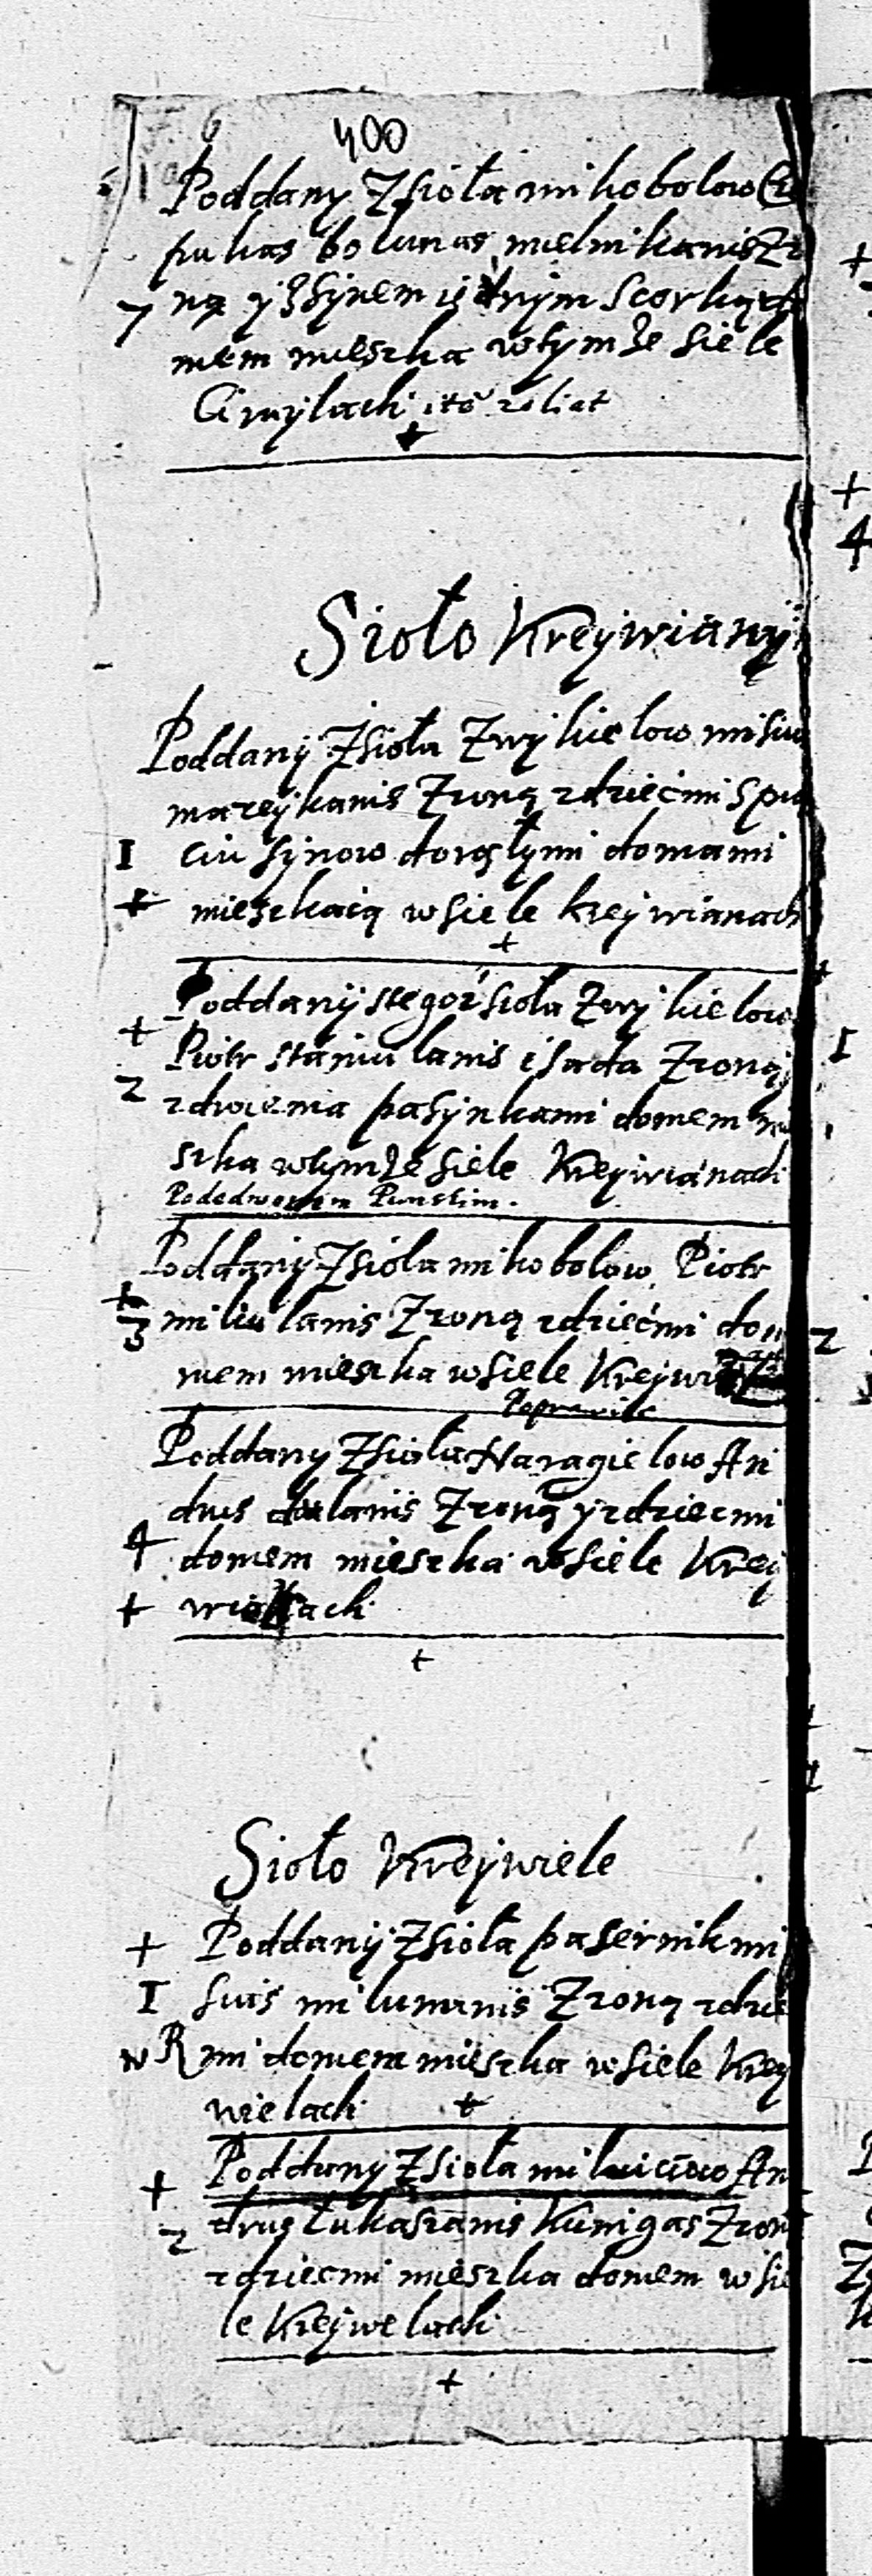 400
Poddany Zsioła mikobolow
pukas bolunas mielnikanis Z
7 ną y Zsynem iednym Scorką
mem mieszka wtymże siele
Giwylach ito 20 liat
Sioło Kreywiany
Poddany Zsioła Zwykielow misiu
mareykanis Zoną zdziećmi Spię
1 ciu synow dorosłymi domami
+ mieszkaią wsiele kreywianach
+
Poddany stegoż sioła Zwykielow
+ Piotr staniulanis isada Zżoną
2 zdwiema pasynkami domem mi
szka wtymże siele Kreywianach
Pododworem Punskim.
Poddany Zsioła mikobolow Piotr
+ 3 mikiulanis Zżoną zdziećmi do
mem mieszka wsiele Kreywi
Poddany Zsioła Naragielow An
drus dulanis Zżoną y zdziecmi
4 domem mieszka wsiele Krey
+ wi ach
+
Sioło Kreywiele
+ Poddany Zsioła pasernik mi
1 suis milunanis Zżoną zdzie
NR mi domem mieszka wsiele Krey
wielach +
+ Poddany Zsioła An
2 drus Łukaszanis Kunigas Zżon
zdziecmi mieszka domem wsie
le Kreywelach
+